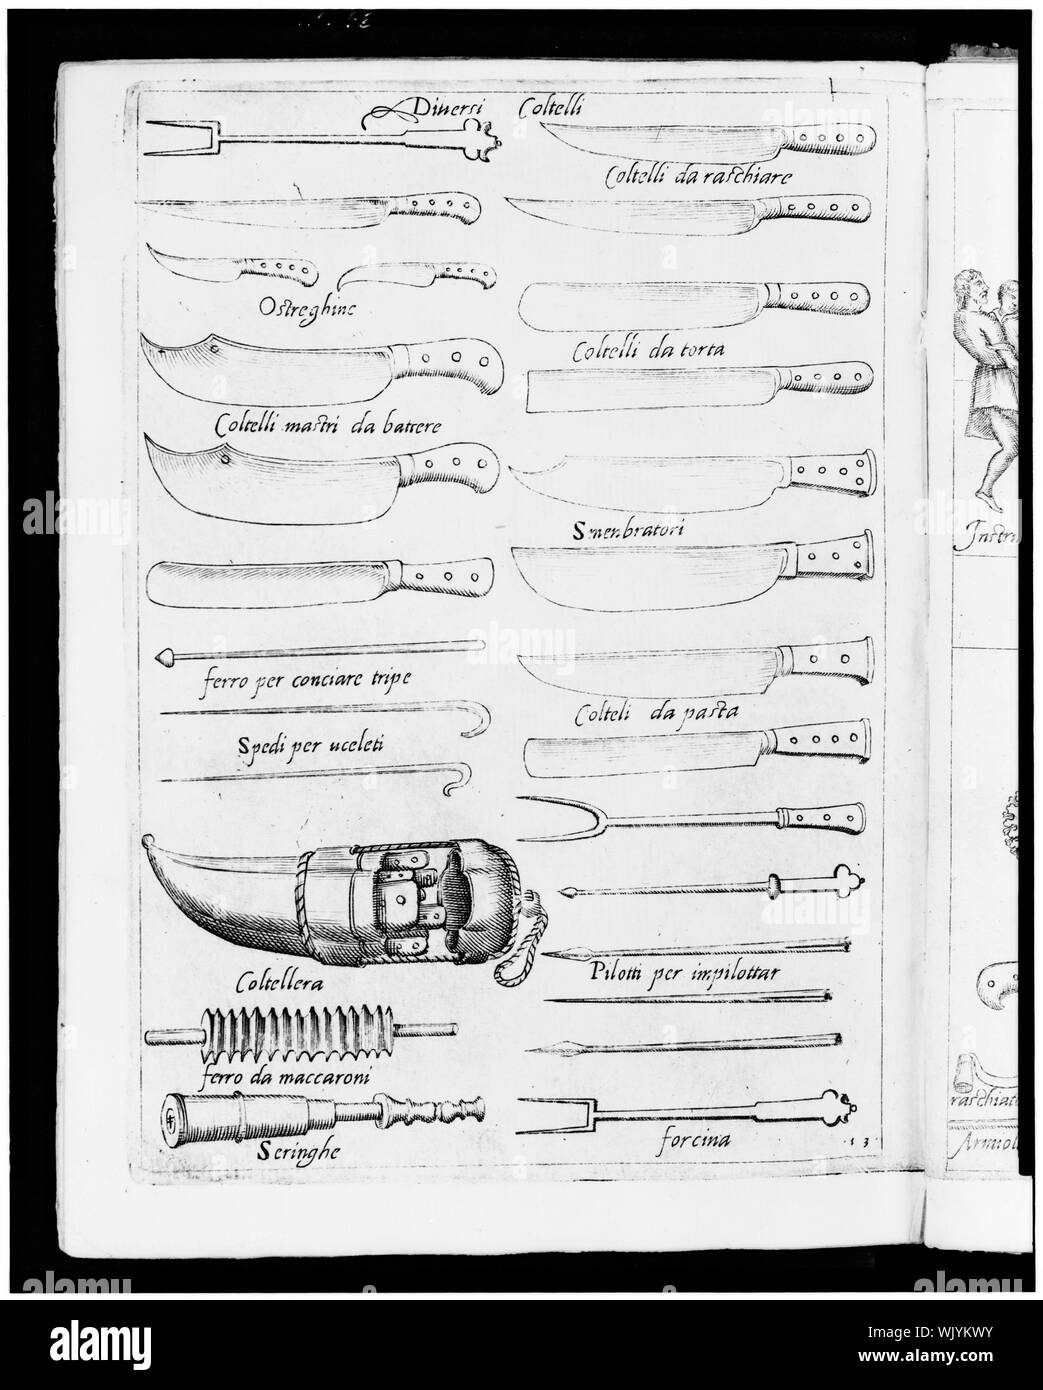 Diversi Coltelli
Coltelli da raschiare
Ostreghine
Coltelli da torta
Coltelli mastri da battere
Smenbratori
ferro per conciare tripe
Colteli da pasta
Spedi per uceleti
Coltellera
Pilotti per impilottar
ferro da maccaroni
Seringhe
forcina
13
Instru
raschiato
alamy
Image ID: WJYKWY
www.alamy.com